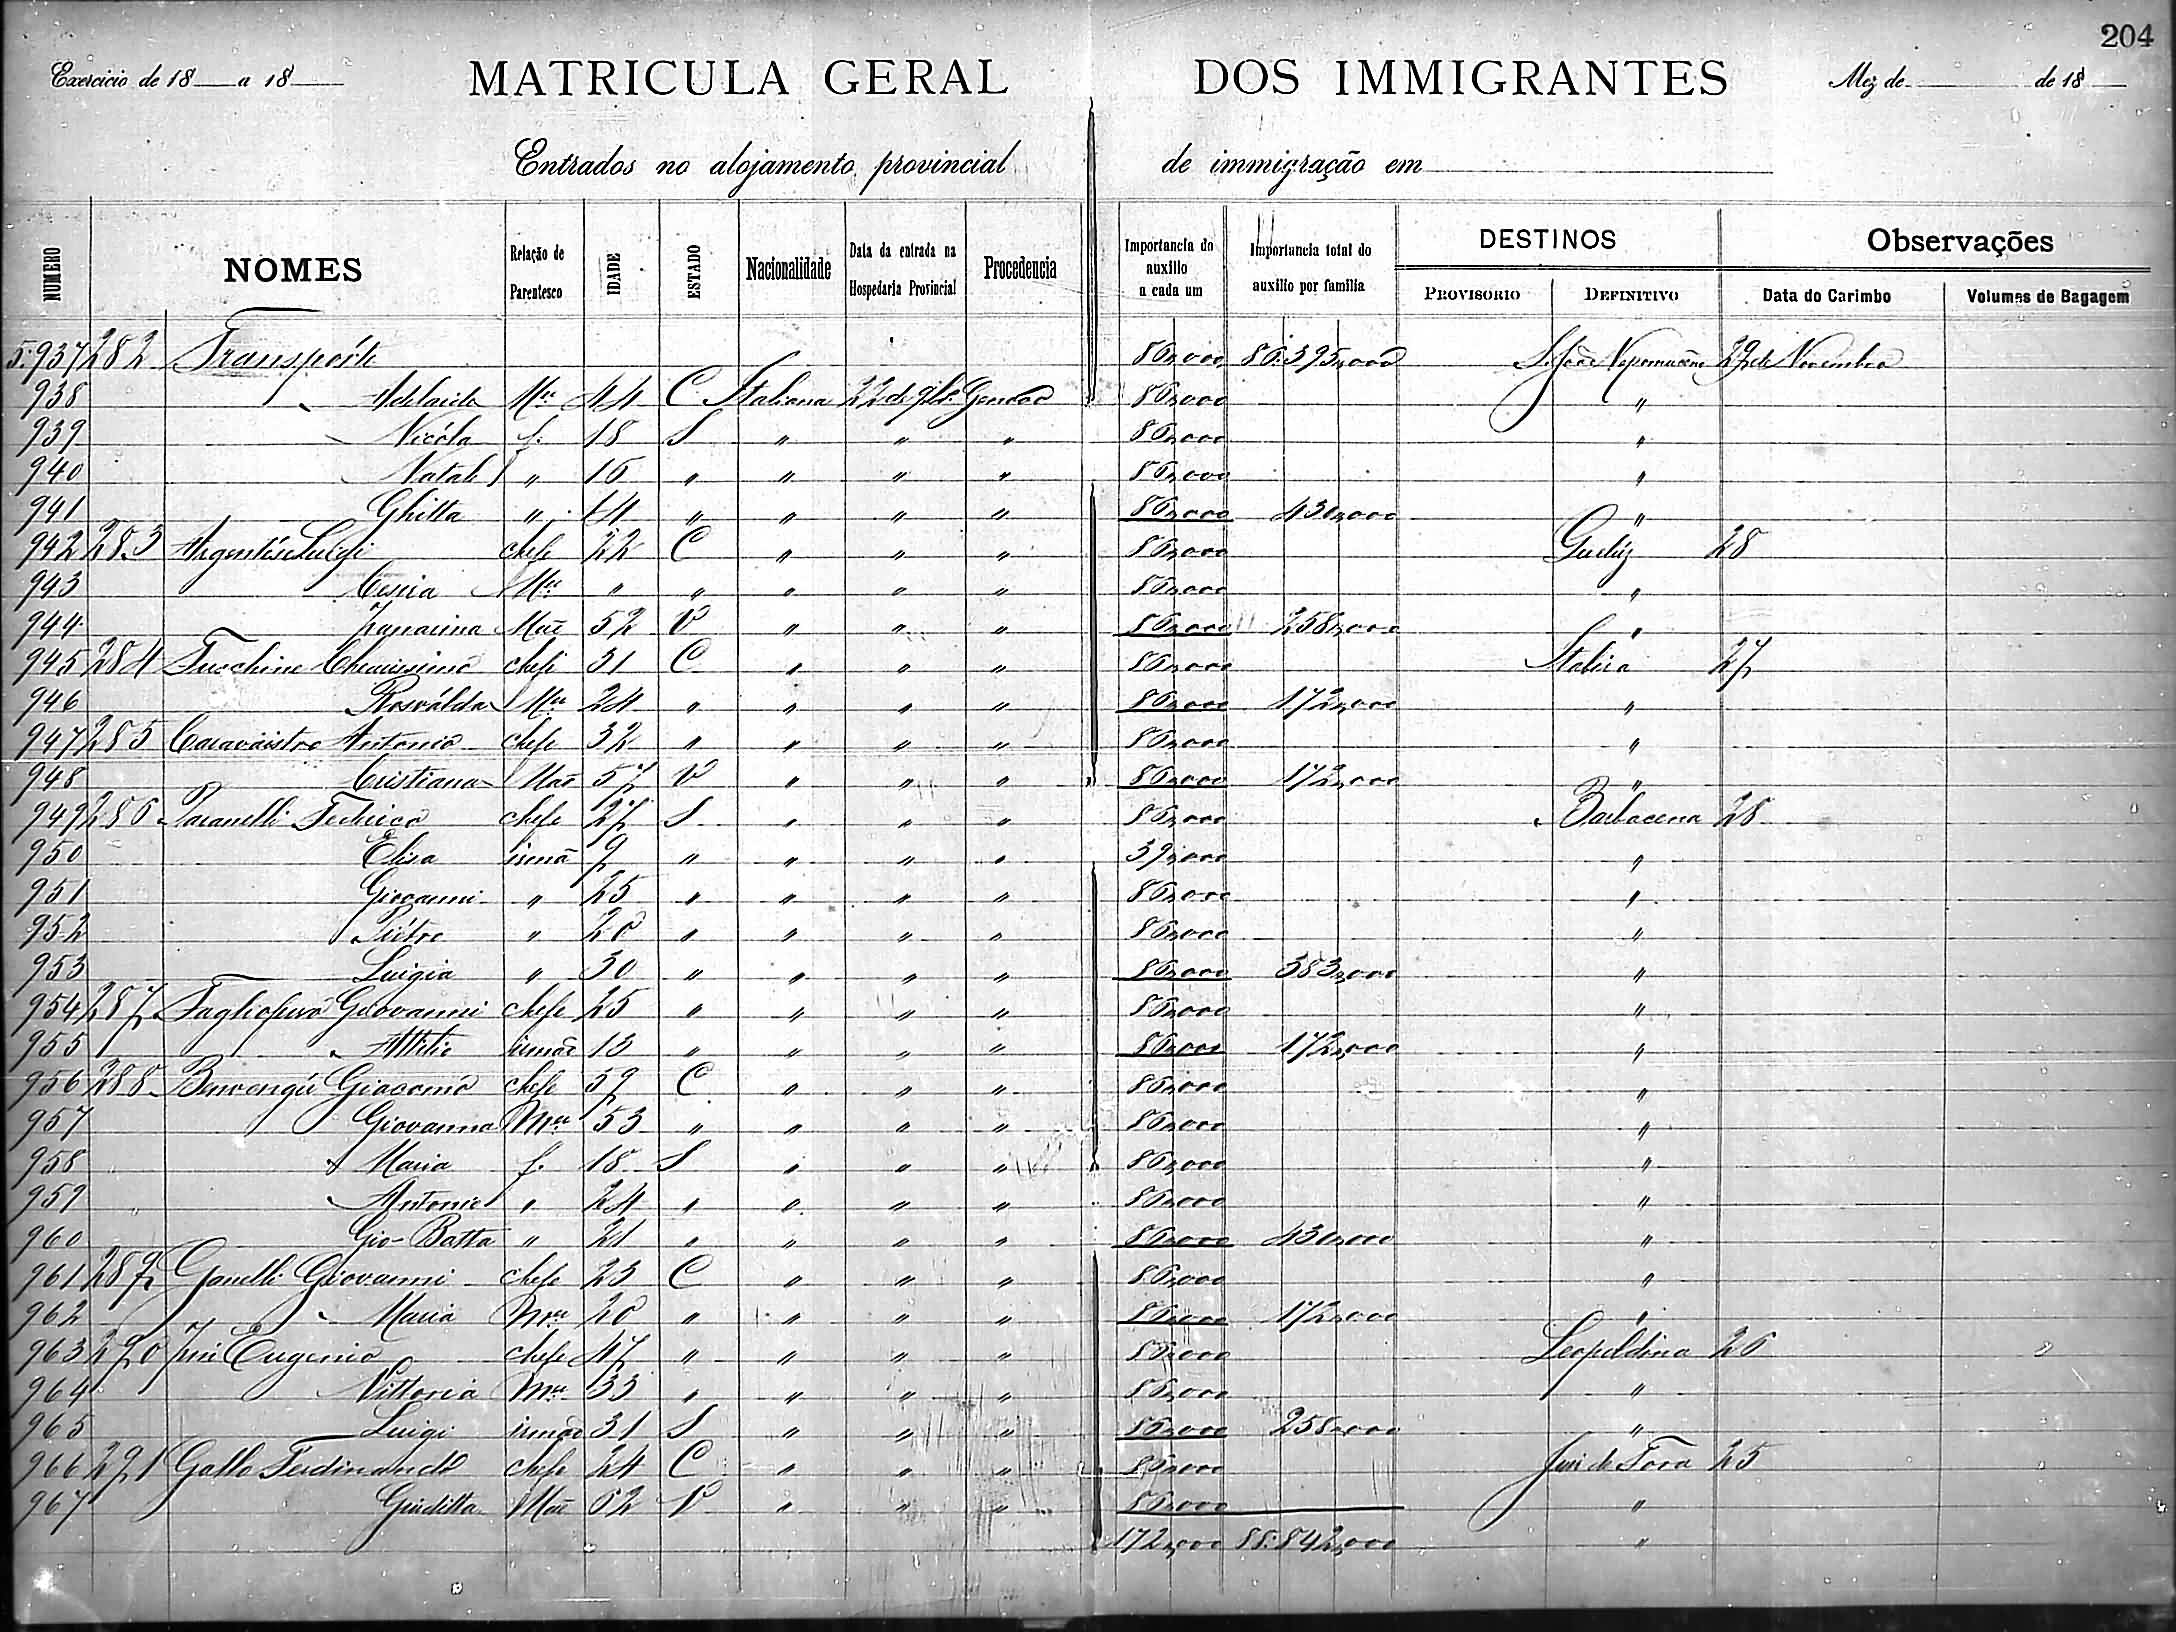 204
Exercicio de 18 a 18 MATRICULA GERAL DOS IMMIGRANTES Mez de de 18
Entrados no alojamento provincial de immigração em
NUMERO NOMES Relação de Parentesco IDADE ESTADO Nacionalidade Data da entrada na Hospedaria Provincial Procedencia Importancia do auxilio a cada um Importancia total do auxilio por familia DESTINOS PROVISORIO DEFINITIVO Observações Data do Carimbo Volumes de Bagagem
5.937 282 Transporte 86,000 86:395,000 S. João Nepomuceno 29 de Novembro
938 Adelaide Mer 44 C Italiana 22 de 9bro Genova 86,000 "
939 Nicóla f. 18 S " " " 86,000 "
940 Natale " 16 " " " " 86,000 "
941 Ghitta " 14 " " " " 86,000 430,000 "
942 283 Luigi chefe 22 C " " " 86,000 28
943 Mer " " " " " 86,000 "
944 Mãe 52 V " " " 86,000 258,000 "
945 284 chefe 31 C " " " 86,000 Itabira 27
946 Mer 24 " " " " 86,000 172,000 "
947 285 Antonio chefe 32 " " " " 86,000 "
948 Cristiana Mãe 57 V " " " 86,000 172,000 "
949 286 chefe 27 S " " " 86,000 Barbacena 28
950 Elisa irmã 9 " " " " 39,000 "
951 Giovanni " 25 " " " " 86,000 "
952 Piétro " 20 " " " " 86,000 "
953 Luigia " 30 " " " " 86,000 383,000 "
954 287 Giovanni chefe 25 " " " " 86,000 "
955 Attilio irmão 13 " " " " 86,000 172,000 "
956 288 Giacomo chefe 59 C " " " 86,000 "
957 Giovanna Mer 53 " " " " 86,000 "
958 Maria f. 18 S " " " 86,000 "
959 Antonio " 24 " " " " 86,000 "
960 Gio-Batta " 21 " " " " 86,000 430,000 "
961 289 Ganelli Giovanni chefe 23 C " " " 86,000 "
962 Maria Mer 20 " " " " 86,000 172,000 "
963 290 Eugenio chefe 47 " " " " 86,000 Leopoldina 26
964 Vittoria Mer 33 " " " " 86,000 "
965 Luigi irmão 31 S " " " 86,000 258,000 "
966 291 Gallo Ferdinando chefe 24 C " " " 86,000 Juiz de Fora 25
967 Giuditta Mãe 62 V " " " 86,000 "
172,000 88:842,000 "